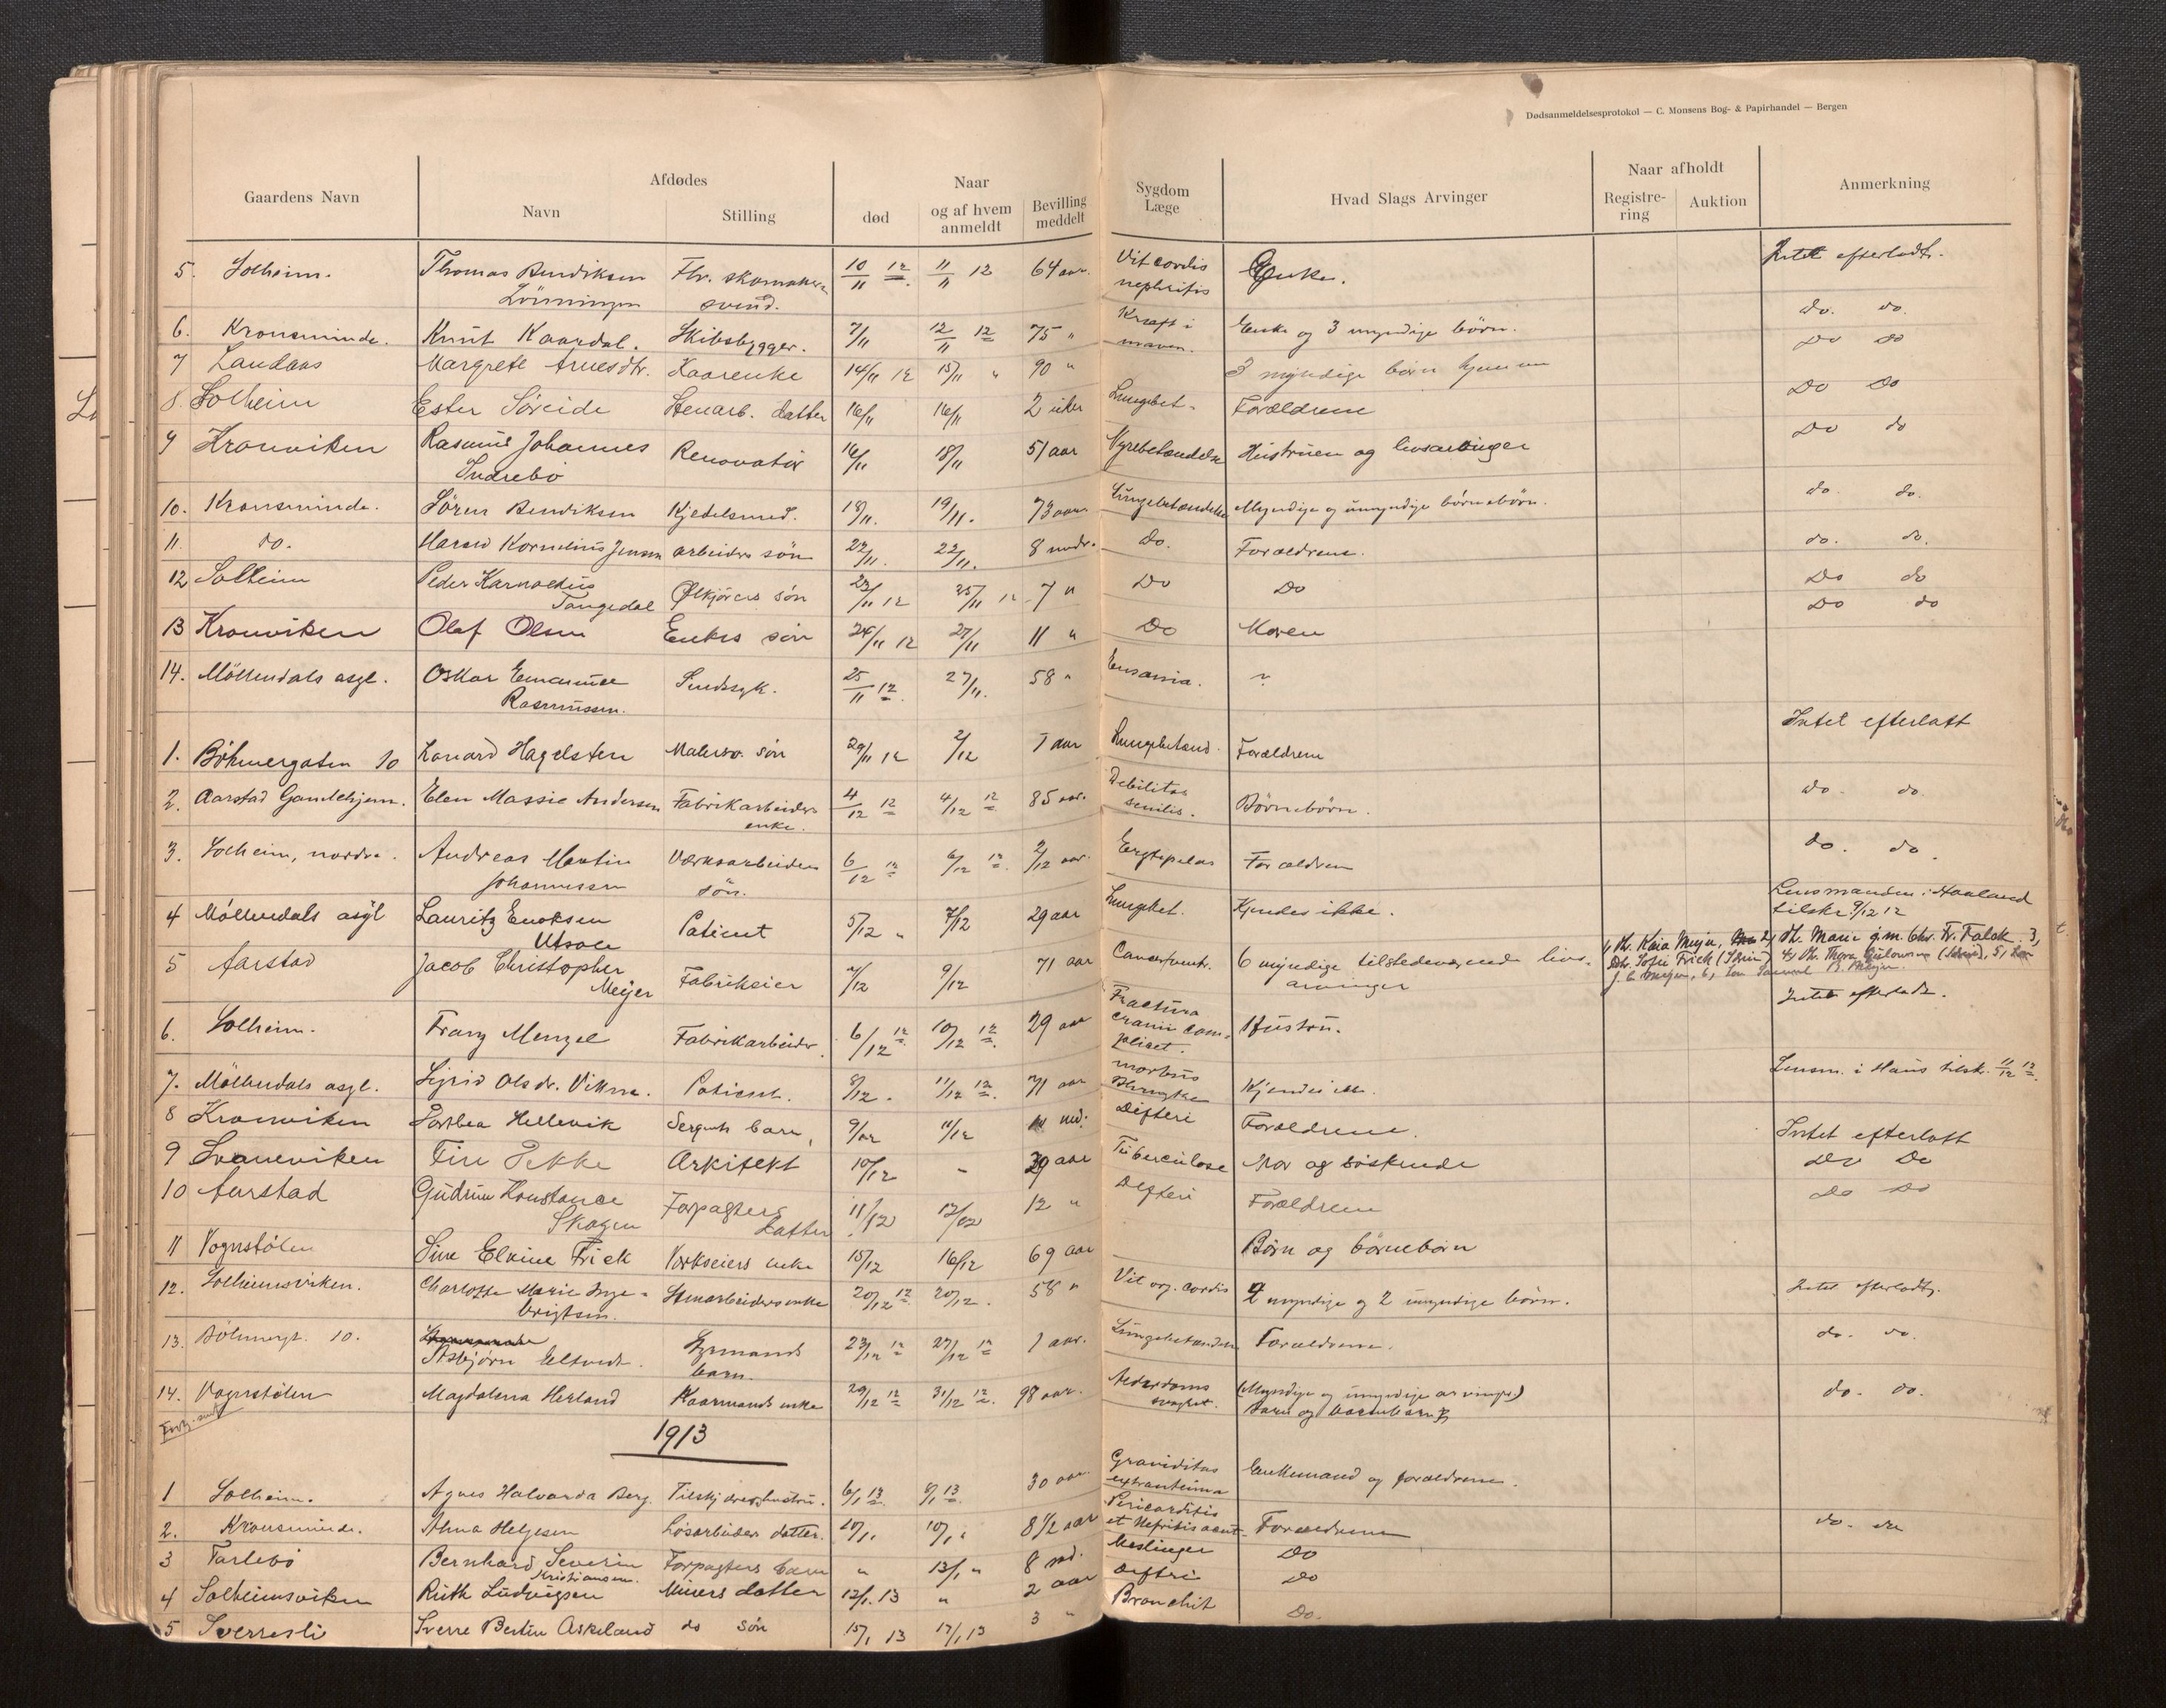 Dødsanmeldelsesprotokol — C. Monsens Bog- & Papirhandel — Bergen
Gaardens Navn Afdødes Navn Stilling Naar død og af hvem anmeldt Bevilling meddelt Sygdom Læge Hvad Slags Arvinger Naar afholdt Registrering Auktion Anmerkning
5. Solheim. Thomas Bendiksen Fhv. skomaker- 10/11 12 11/11 12 64 aar. Vit cordis Enke. Intet efterladt.
svend. nephritis
6. Kronsminde. Knut Kaardal. Skibsbygger. 7/11 12/11 12 75 " Kræft i Enke og 3 myndige börn. do. do.
maven.
7 Landaas Margrete Arnesdtr. Kaarenke 14/11 12 15/11 " 90 " 3 myndige börn Do do
8. Solheim Ester Söreide Stenarb. datter 16/11 16/11 2 uker Lungebet. Forældrene Do Do
9 Kronviken Rasmus Johannes Renovatör 16/11 18/11 51 aar Nyrebetændelse Hustruen og livsarvinger Do do
Indrebö
10. Kronsminde. Sören Bendiksen Kjedelsmed. 18/11. 19/11. 73 aar Lungebetændelse Myndige og umyndige börnebörn. do. do.
11. do. Kornelius Jensen arbeiders sön 22/11. 22/11. 8 mdr. Do. Forældrene. do. do.
12 Solheim Peder Karnoelius Ölkjörers sön 23/11 12 25/11 12 7 " Do Do Do do
Tangedal
13 Kronviken Olaf Olsen Enkes sön 24/11 12 27/11 11 " Do Moren Do do
14. Möllendals asyl. Oskar Emanuel Sindssyk. 25/11 12. 27/11. 58 " ?
Rasmussen.
1. Böhmergaten 10 Lenard Hagelsten Malersv. sön 29/11 12 2/12 1 aar Lungebetænd. Forældrene Intet efterlatt
2. Aarstad Gamlehjem. Elen Massie Andersen Fabrikarbeiders 4/12 12 4/12 12 85 aar. Debilitas Börnebörn. do. do.
enke. senilis.
3. Solheim, nordre. Andreas Martin Værksarbeiders 6/12 12 6/12 12. 2/12 aar. Erysipelas Forældrene do. do.
Johannessen sön.
4 Möllendals asyl Lauritz Enoksen Patient 5/12 " 7/12 29 aar Lungebet. Kjendes ikke. Lensmanden i Haaland
Utsole tilskr. 9/12 12
5 Aarstad Jacob Christopher Fabrikeier 7/12 9/12 71 aar Cancer ventr. 6 myndige tilstedeværende livs- 1, Dtr. Kaia Meyer, 2, dt. Marie g.m. Chr. Fr. Falck. 3,
Meyer arvinger Dtr. Sofie Frick
6. Solheim. Franz Menzel Fabrikarbeider. 6/12 12 10/12 12. 29 aar Fractura Hustru. Intet efterladt.
cranii com-
plicat.
7. Möllendals asyl. Sigrid Olsdr. Vikne. Patient. 8/12. 11/12 12. 71 aar morbus Kjendes ikke. Lensm. i Haus tilskr. 11/12 12.
8 Kronviken Torblea Hellevik Sergents barn, 9/12 11/12 md. Difteri Forældrene. Intet efterlatt
9 Svaneviken Finn Pekke Arkitekt 10/12 - 29 aar Tuberculose Mor og söskende Do Do
10 Aarstad Gudrun Konstance Forpagters 11/12 12/12 12 " Difteri Forældrene do do
Skogen datter
11 Vognstölen Sine Elvine Frick Værkseiers enke 15/12 16/12 69 aar Börn og börnebörn
12. Solheimsviken. Charlotte Marie Inge- Stenarbeidersenke 20/12 12 20/12. 58 " Vit org. cordis 2 myndige og 2 umyndige börn. Intet efterladt.
brigtsen.
13. Böhmergt. 10. Asbjörn Eltvedt. 23/12 12 27/12 12 1 aar. Lungebetændelse Forældrene. do. do.
barn.
14. Vognstölen Magdalena Herland Kaarmands enke 29/12 12 31/12 12. 98 aar. Alderdoms (Myndige og umyndige arvinger) do. do.
svaghet. Barn og barnebarn
1913
1 Solheim. Agnes Halvarda Berg. Tilskjærerhustru. 6/1 13 8/1 13. 30 aar. Graviditas Enkemand og forældrene.
extrauterina
2. Kronsminde. Alma Helgesen Lösarbeiders datter. 10/1. 10/1. 8 1/2 aar Pericarditis Forældrene do. do
et Nefritis acut
3 Tarlebö Bernhard Severin Forpagters barn " 13/1 " 8 md. Meslinger Do
Kristiansen.
4 Solheimsviken Ruth Ludvigsen Murers datter 12/1. 13 " 2 aar Difteri Do
5 Sverresli Sverre Bertin Askeland do sön 15/1 13 17/1 13 3 " Bronchit Do.